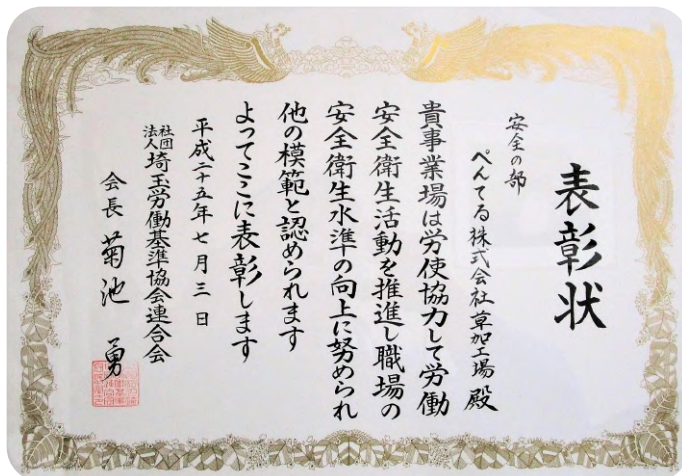 表彰状
安全の部
ぺんてる株式会社草加工場殿
貴事業場は労使協力して労働
安全衛生活動を推進し職場の
安全衛生水準の向上に努められ
他の模範と認められます
よってここに表彰します
平成二十五年七月三日
社団法人埼玉労働基準協会連合会
会長 菊池 勇